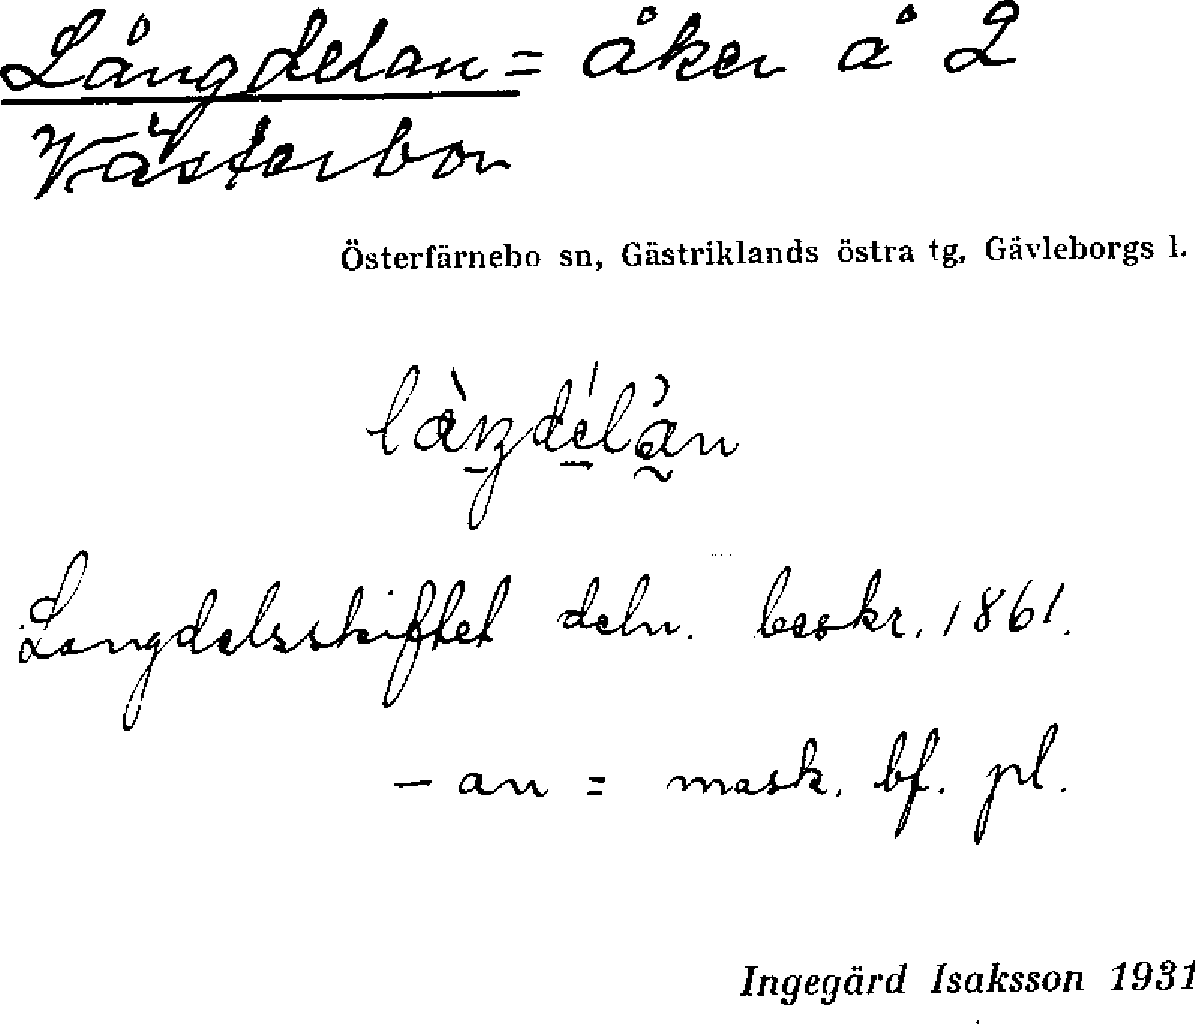 Långdelan = åker å 2
Västerbor
Österfärnebo sn, Gästriklands östra tg. Gävleborgs l.
Langdelsskiftet deln. beskr. 1861.
– an = mask. bf. pl.
Ingegärd Isaksson 1931